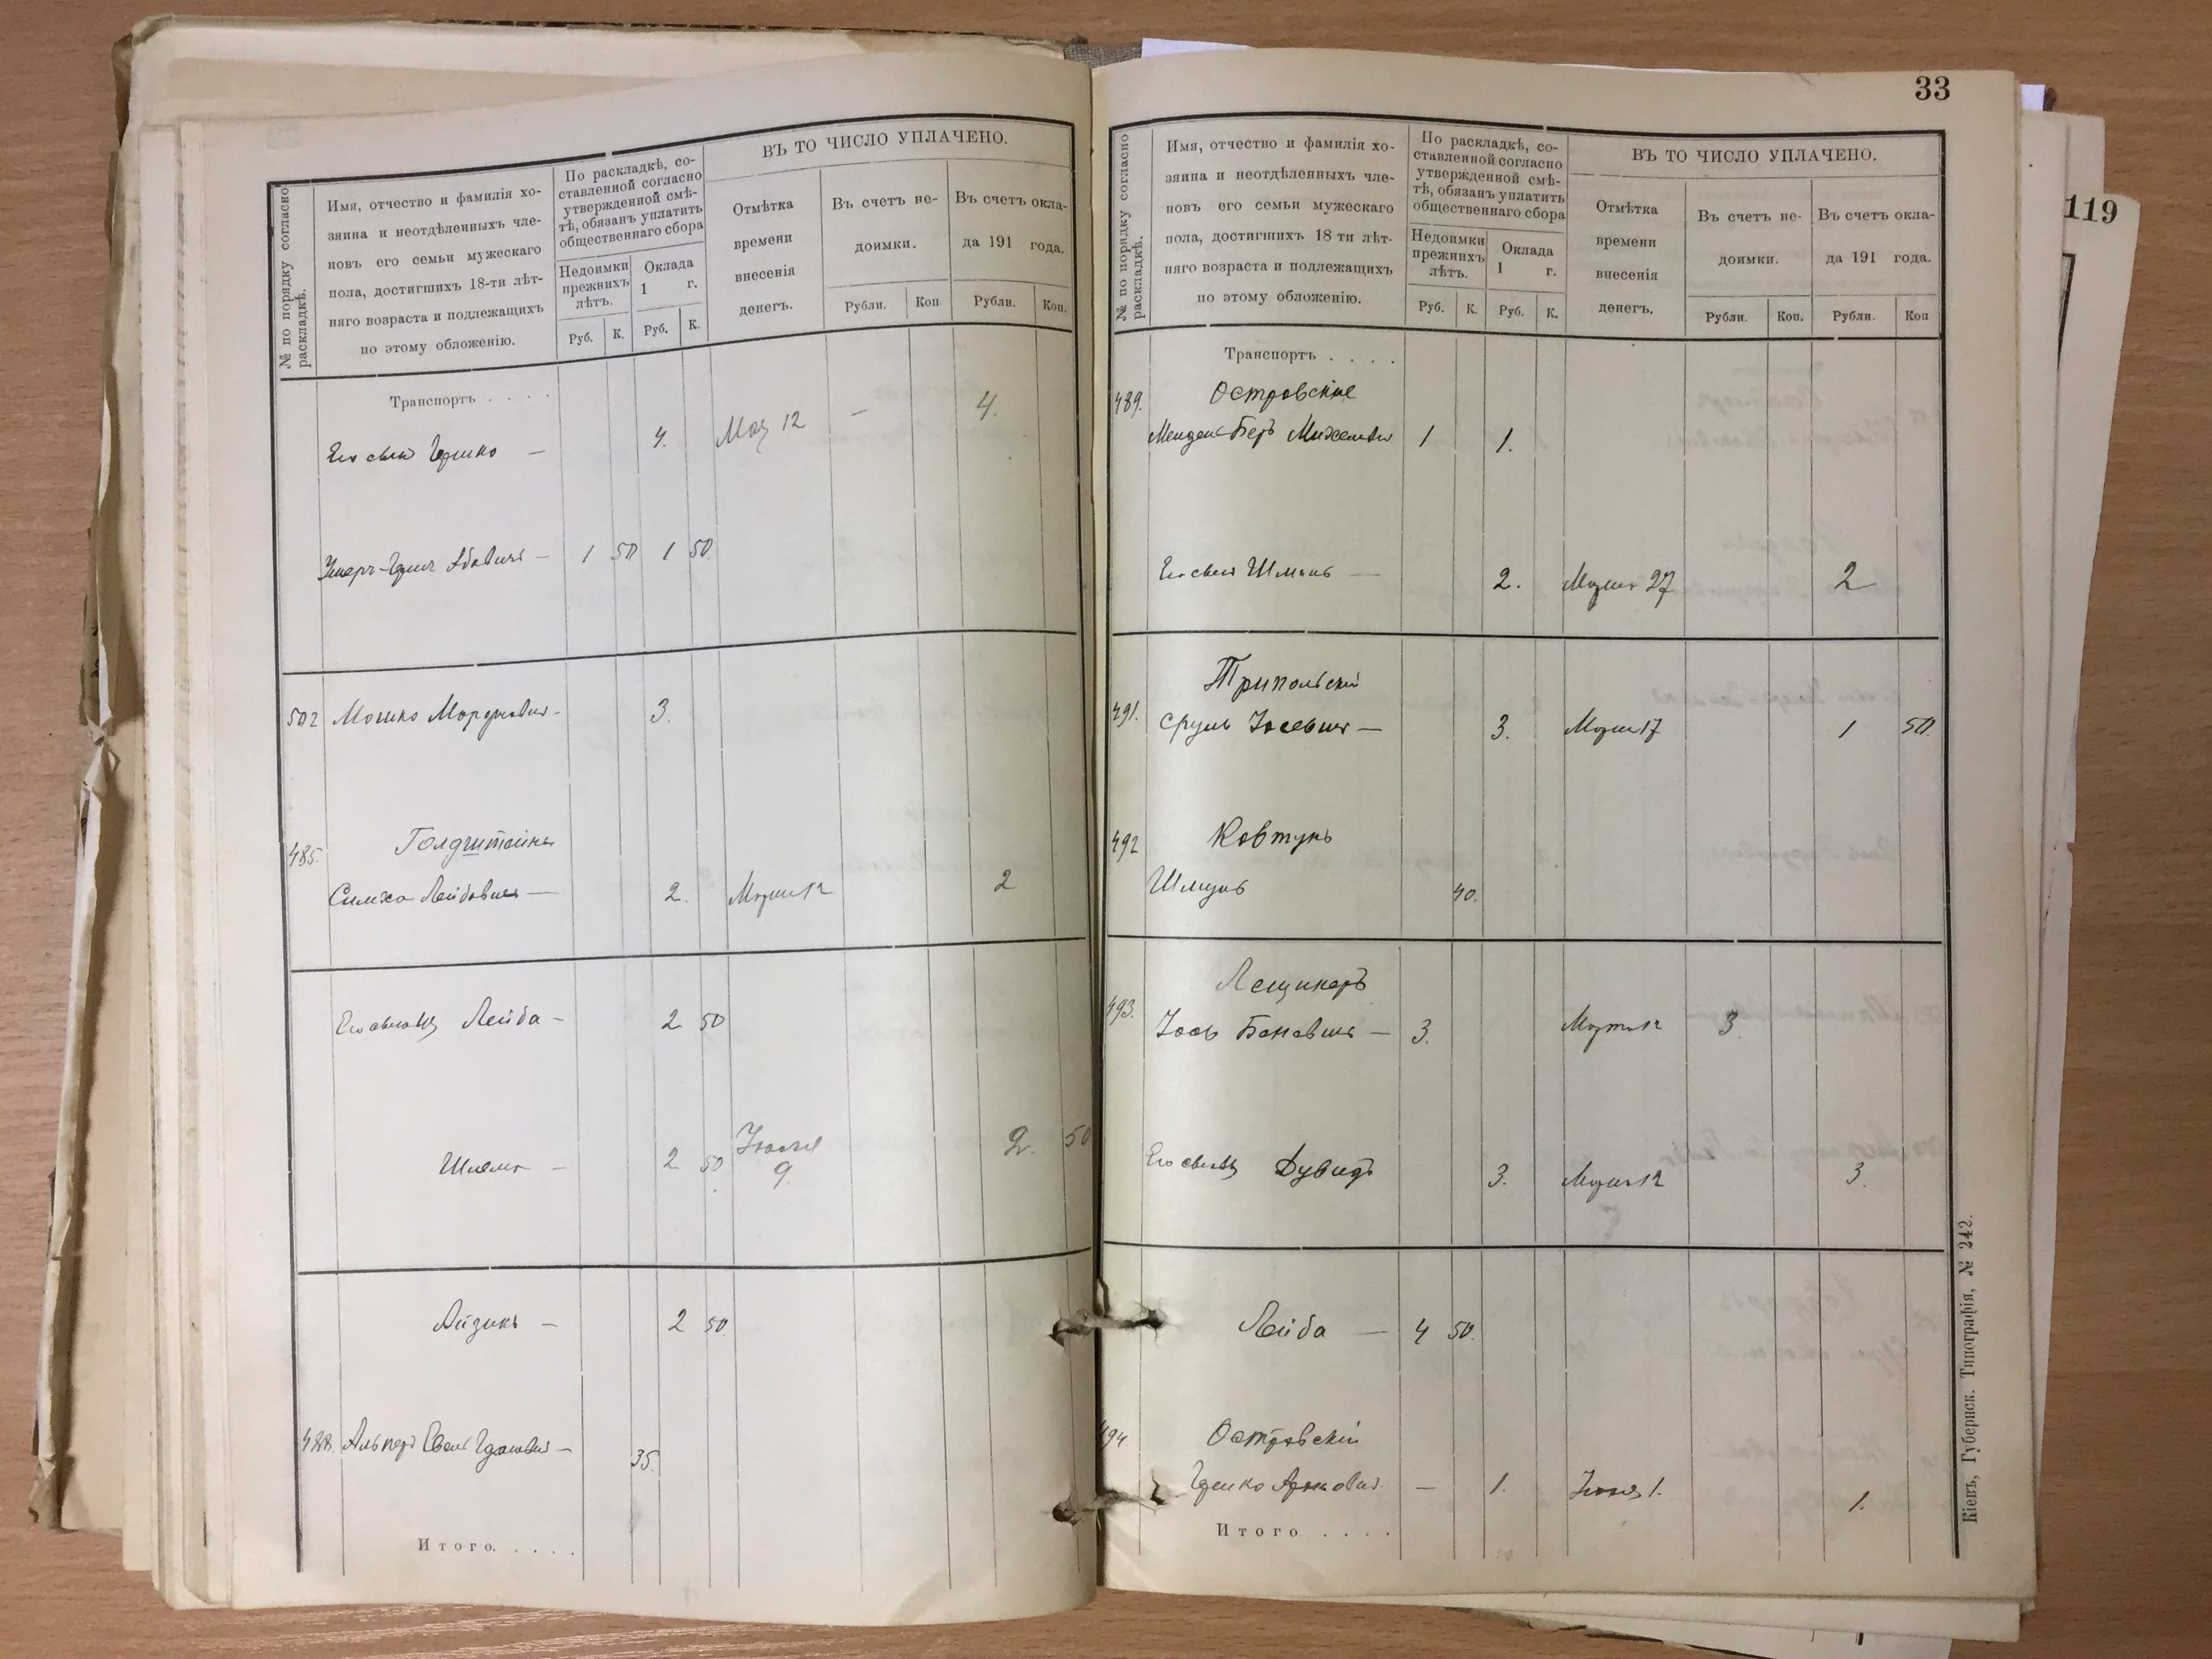 № по порядку согласно
раскладкѣ.
Имя, отчество и фамилія хо-
зяина и неотдѣленныхъ чле-
новъ его семьи мужескаго
пола, достигшихъ 18-ти лѣт-
няго возраста и подлежащихъ
по этому обложенію.
По раскладкѣ, со-
ставленной согласно
утвержденной смѣ-
тѣ, обязанъ уплатить
общественнаго сбора
Недоимки
прежнихъ
лѣтъ.
Оклада
1 г.
Руб. К. Руб. К.
ВЪ ТО ЧИСЛО УПЛАЧЕНО.
Отмѣтка
времени
внесенія
денегъ.
Въ счетъ не-
доимки.
Въ счетъ окла-
да 191 года.
Рубли. Коп Рубли. Коп.
Транспортъ . . . .
Его сынъ — 4. Мая 12 — 4.
— 1 50 1 50.
502 Мошко Мордковичъ — 3.
485. Голдштейнъ
Симха Лейбовичъ — 2. Марта 12 2
Его сыновья Лейба — 2 50
Шлема — 2 50 Іюля 9. 2. 50
Айзикъ — 2 50.
488. Альперъ — 35.
Итого. . . . .
33
№ по порядку согласно
раскладкѣ.
Имя, отчество и фамилія хо-
зяина и неотдѣленныхъ чле-
новъ его семьи мужескаго
пола, достигшихъ 18 ти лѣт-
няго возраста и подлежащихъ
по этому обложенію.
По раскладкѣ, со-
ставленной согласно
утвержденной смѣ-
тѣ, обязанъ уплатить
общественнаго сбора
Недоимки
прежнихъ
лѣтъ.
Оклада
1 г.
Руб. К. Руб. К.
ВЪ ТО ЧИСЛО УПЛАЧЕНО.
Отмѣтка
времени
внесенія
денегъ.
Въ счетъ не-
доимки.
Въ счетъ окла-
да 191 года.
Рубли. Коп. Рубли. Коп
Транспортъ . . . .
489. Островскіе
Мендель-Беръ 1 1.
Его сынъ — 2. Марта 27 2
491. Трипольскій
Сруль Іосевичъ — 3. Марта 17 1 50.
492 Ковтунъ
Шмуль 40.
493. Лещинеръ
Іось — 3. Марта 12 3.
Его сыновья Дувидъ 3. Марта 12 3.
Лейба — 4 50.
494. Островскій
— 1. 1.
Итого . . . .
Кіевъ, Губернск. Типографія, № 242.
119